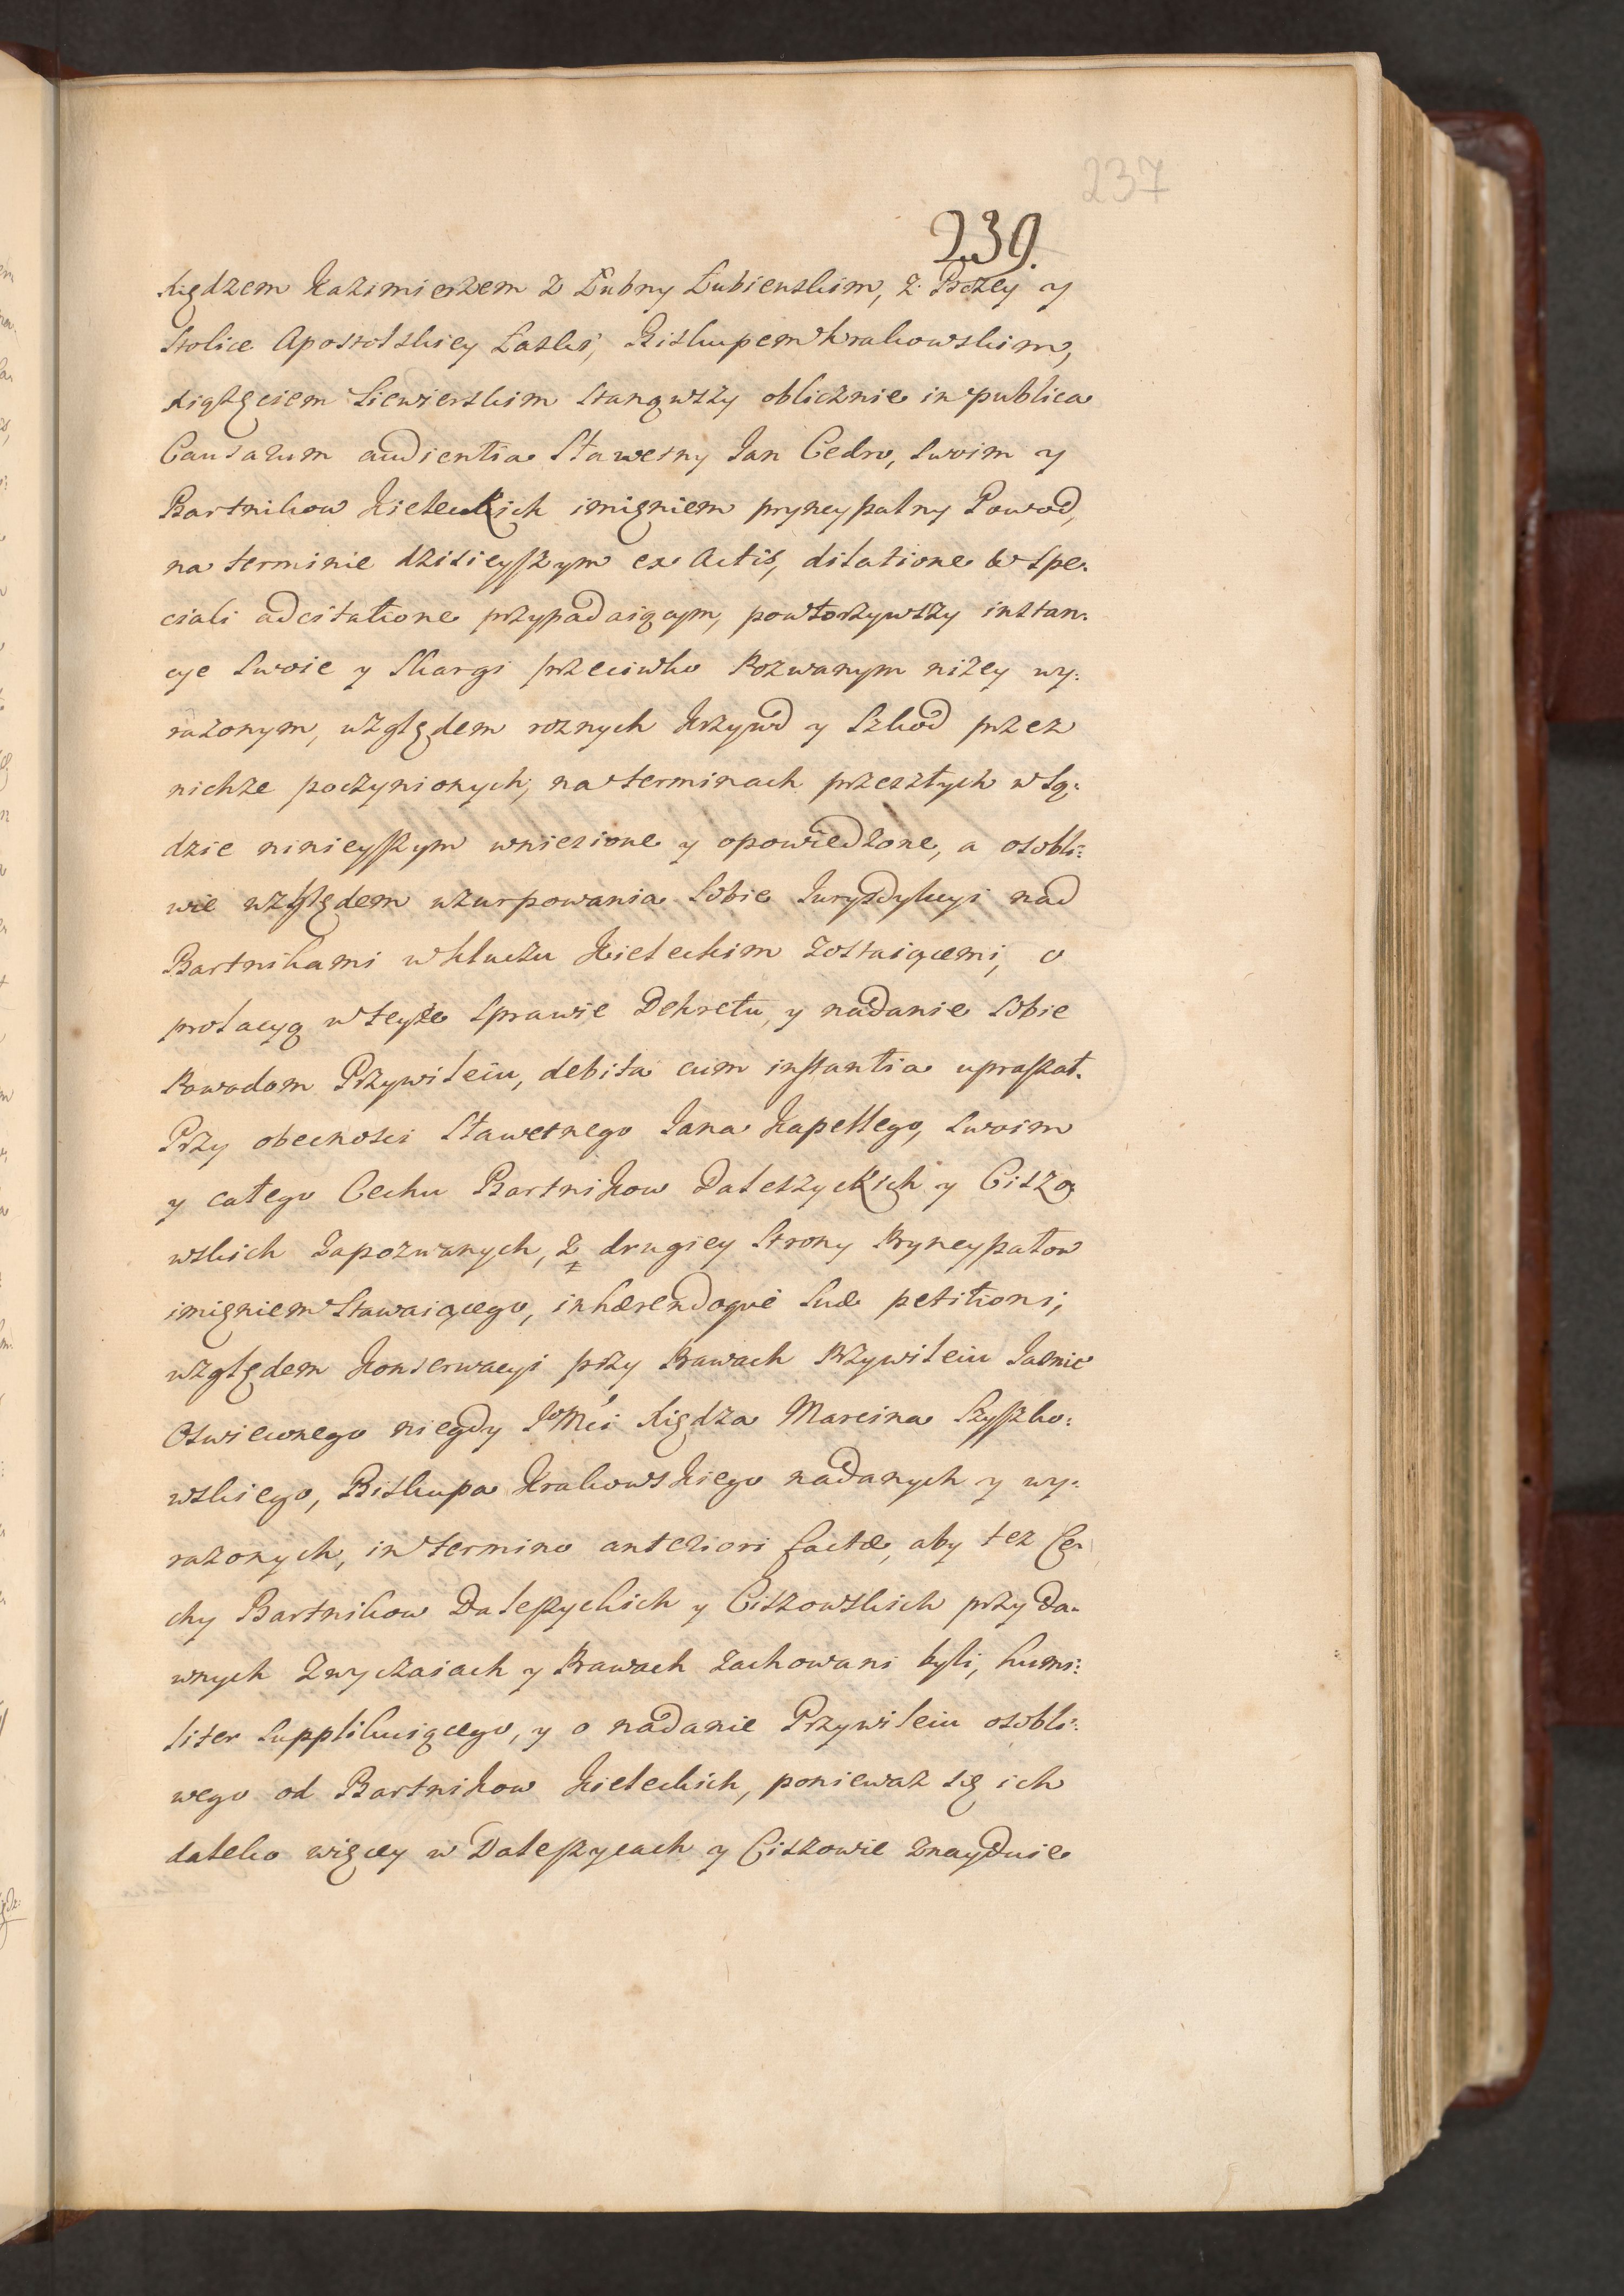 237
239.
Xiędzem Kazimierzem z Łubny Łubienskim, z Bożey y
Stolice Apostolskiey Łaski, Biskupem Krakowskim,
Xiążęciem Siewierskim stanąwszy oblicznie in publica
Causarum audientia Sławetny Jan Cedro, swoim y
Bartnikow Kieleckich imięniem pryncypalny Powod,
na terminie dzisieyszym ex Actis, dilatione & spe-
ciali adcitatione przypadaiącym, powtorzywszy instan-
cye swoie y skargi przeciwko Pozwanym niżey wy-
rażonym, względem roznych krzywd y szkod przez
nichże poczynionych, na terminach przeszłych w Są-
dzie ninieyszym wniesione y opowiedzone, a osobli-
wie względem uzurpowania sobie Jurysdykcyi nad
Bartnikami w kluczu Kieleckim zostaiącemi, o
prolacyą w teyże sprawie Dekretu, y nadanie sobie
Powodom Przywileiu, debita cum instantia upraszał.
Przy obecnosci Sławetnego Jana Kapellego, swoim
y całego Cechu Bartnikow Daleszyckich y Ciszo-
wskich Zapozwanych, z drugiey strony Pryncypałow
imięniem stawaiącego, inhærendoque suæ petitioni,
względem konserwacyi przy Prawach Przywileiu Jasnie
Oswieconego niegdy JoMci Xiędza Marcina Szyszko-
wskiego, Biskupa Krakowskiego nadanych y wy-
rażonych, in termino anteriori factæ, aby też Ce-
chy Bartnikow Daleszyckich y Ciszowskich przy da-
wnych zwyczaiach y Prawach zachowani byli, humi-
liter supplikuiącego, y o nadanie Przywileiu osobli-
wego od Bartnikow Kieleckich, ponieważ się ich
daleko więcey w Daleszycach y Ciszowie znayduie